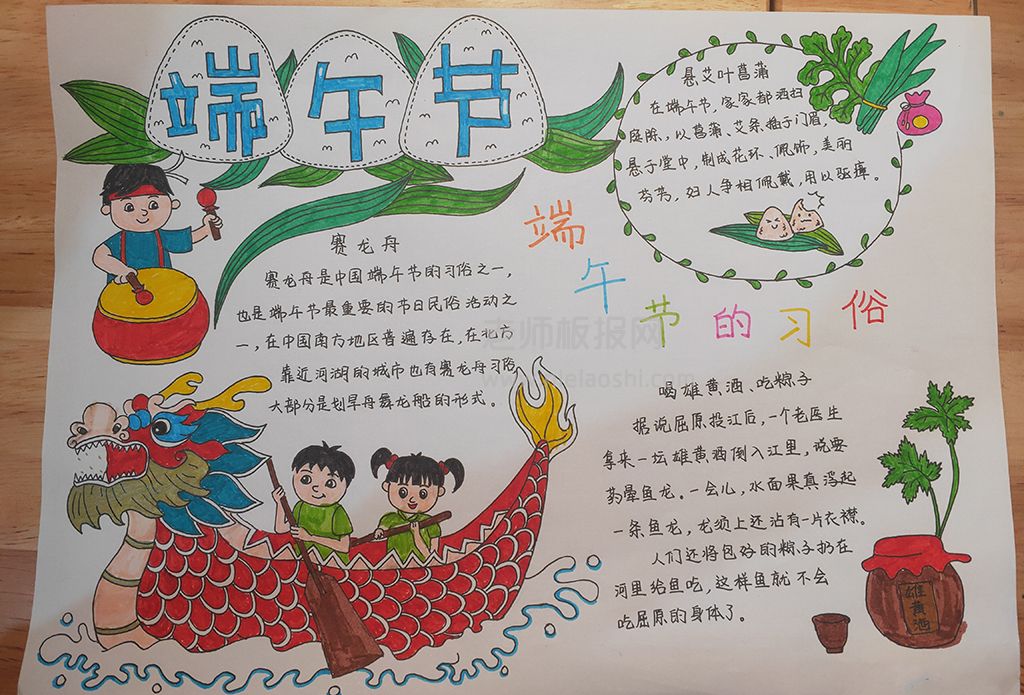 端午节
悬艾叶菖蒲
在端午节，家家都洒扫
庭除，以菖蒲、艾条插于门眉，
悬于堂中，制成花环、佩饰，美丽
芬芳，妇人争相佩戴，用以驱瘴。
赛龙舟
赛龙舟是中国端午节的习俗之一，
也是端午节最重要的节日民俗活动之
一，在中国南方地区普遍存在，在北方
靠近河湖的城市也有赛龙舟习俗
大部分是划旱舟舞龙船的形式。
端午节的习俗
喝雄黄酒、吃粽子
据说屈原投江后，一个老医生
拿来一坛雄黄酒倒入江里，说要
药晕鱼龙。一会儿，水面果真浮起
一条鱼龙，龙须上还沾有一片衣襟。
人们还将包好的粽子扔在
河里给鱼吃，这样鱼就不会
吃屈原的身体了。
雄黄酒
老师板报网